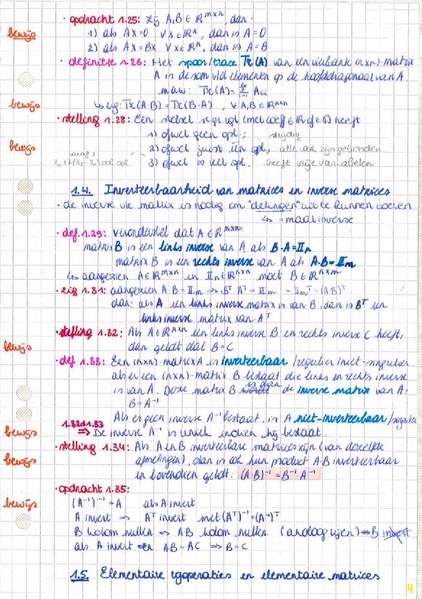 bewijs • opdracht 1.25: zij A,B ∈ ℝ^m×n, dan
1) als Ax=0 ∀x∈ℝⁿ, dan is A=0
2) als Ax=Bx ∀x∈ℝⁿ, dan is A=B
• definitie 1.26: Het spoor/trace Tr(A) van een vierkante (n×n)-matrix
A is de som vd elementen op de hoofddiagonaal van A.
m.a.w: Tr(A) =
bewijs ↳ eig: Tr(A·B) = Tr(B·A), ∀A,B∈ℝ^n×n
• stelling 1.28: Een stelsel vgl (met coëff ∈ ℝ of ∈ ℂ) heeft
1) ofwel geen opl.; strijdig
bewijs 2) ofwel juist één opl, alle var zijn gebonden
3) ofwel ∞ veel opl. heeft vrije variabelen
1.4. Inverteerbaarheid van matrices en inverse matrices
• de inverse vie matrix is nodig om "delingen" uit te kunnen voeren
↳ = maal inverse
• def 1.29: veronderstel dat A∈ℝ^m×n
matrix B is een links inverse van A als B·A=𝕀n
matrix B is een rechts inverse van A als A·B=𝕀m
↳ aangezien A∈ℝ^m×n en 𝕀n∈ℝ^n×n moet B∈ℝ^n×m
• eig 1.31: aangezien A·B=𝕀m => Bᵀ·Aᵀ=𝕀m = 𝕀mᵀ = (AB)ᵀ
dan: als A een links inverse matrix is van B, dan is Bᵀ een
links inverse matrix van Aᵀ
bewijs • stelling 1.32: Als A∈ℝ^n×n een links inverse B en rechts inverse C heeft,
dan geldt dat B=C
• def 1.33: Een (n×n)-matrix A is inverteerbaar /regulier/niet-singulier
als er een (n×n)-matrix B bestaat die links en rechts inverse
is van A. Deze matrix B is dan de inverse matrix van A.
B=A⁻¹
Als er geen inverse A⁻¹ bestaat, is A niet-inverteerbaar/singulier
1.32+1.33
bewijs => De inverse A⁻¹ is uniek indien hij bestaat.
• stelling 1.34: Als A en B inverteerbare matrices zijn (van dezelfde
bewijs afmetingen), dan is ook hun product A·B inverteerbaar
en bovendien geldt: (AB)⁻¹=B⁻¹A⁻¹
• opdracht 1.35:
bewijs (A⁻¹)⁻¹=A als A invert
A invert => Aᵀ invert met (Aᵀ)⁻¹=(A⁻¹)ᵀ
B kolom nullen => AB kolom nullen (analoog rijen) => B
als A invert en AB=AC => B=C
1.5. Elementaire rijoperaties en elementaire matrices
4